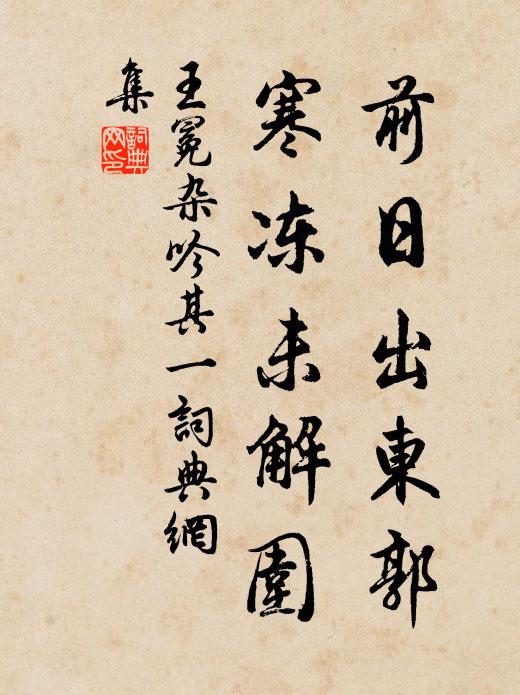 前日出東郭
寒冻未解圍
王冕杂吟其一詞典網
集
詞典網印